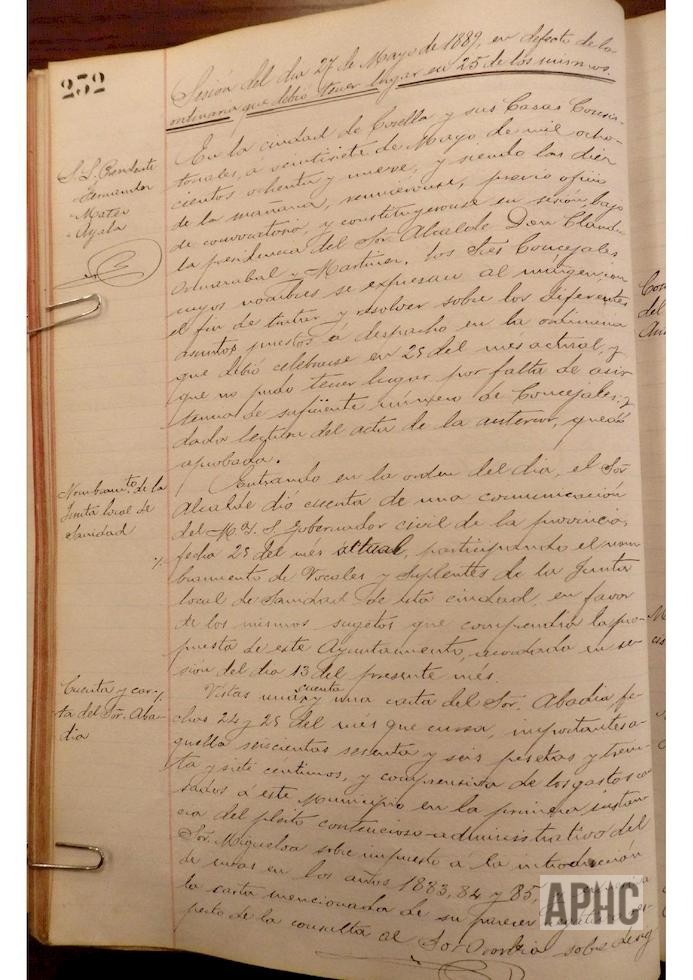 252
Sesión del dia 27 de Mayo de 1889, en defecto de la
ordinaria que debió tener lugar en 25 de los mismos.
S. S. Presidente
Fernandez
Mateo
Ayala
En la ciudad de Corella y sus Casas Consis-
toriales, á veintisiete de Mayo de mil ocho-
cientos ochenta y nueve, y siendo las diez
de la mañana, reunieronse, previo oficio
de convocatoria, y constituyeronse en sesión, bajo
la presidencia del Sor. Alcalde Don Claudio
y Martinez, los Sres Concejales
cuyos nombres se expresan al márgen, con
el fin de tratar y resolver sobre los diferentes
asuntos puestos á despacho en la ordinaria
que debió celebrarse en 25 del mes actual, y
que no pudo tener lugar por falta de asis-
tencia de suficiente número de Concejales; y
dada lectura del acta de la anterior, quedó
aprobada.
Nombramto. de la
Junta local de
Sanidad
Entrando en la orden del dia, el Sor
Alcalde dió cuenta de una comunicación
del M. I. S. Gobernador civil de la provincia,
fecha 25 del mes actual, participando el nom-
bramiento de Vocales y Suplentes de la Junta
local de Sanidad de esta ciudad, en favor
de los mismos sugetos que comprendia la pro-
puesta de este Ayuntamiento, acordada en se-
sión del dia 13 del presente mes.
Cuenta y car-
ta del Sor. Aba-
dia
Vistas una cuenta y una carta del Sor. Abadia, fe-
chas 24 y 25 del més que cursa, importantes a-
quella seiscientas sesenta y seis pesetas y trein-
ta y siete céntimos, y comprensiva de los gastos cau-
sados á este Municipio en la primera instan-
cia del pleito contencioso-administrativo del
Sor. Migueloa sobre impuesto á la introducción
de uvas en los años 1883, 84 y 85,
la carta mencionada de su parecer
pecto de la consulta al Sor. sobre
APHC